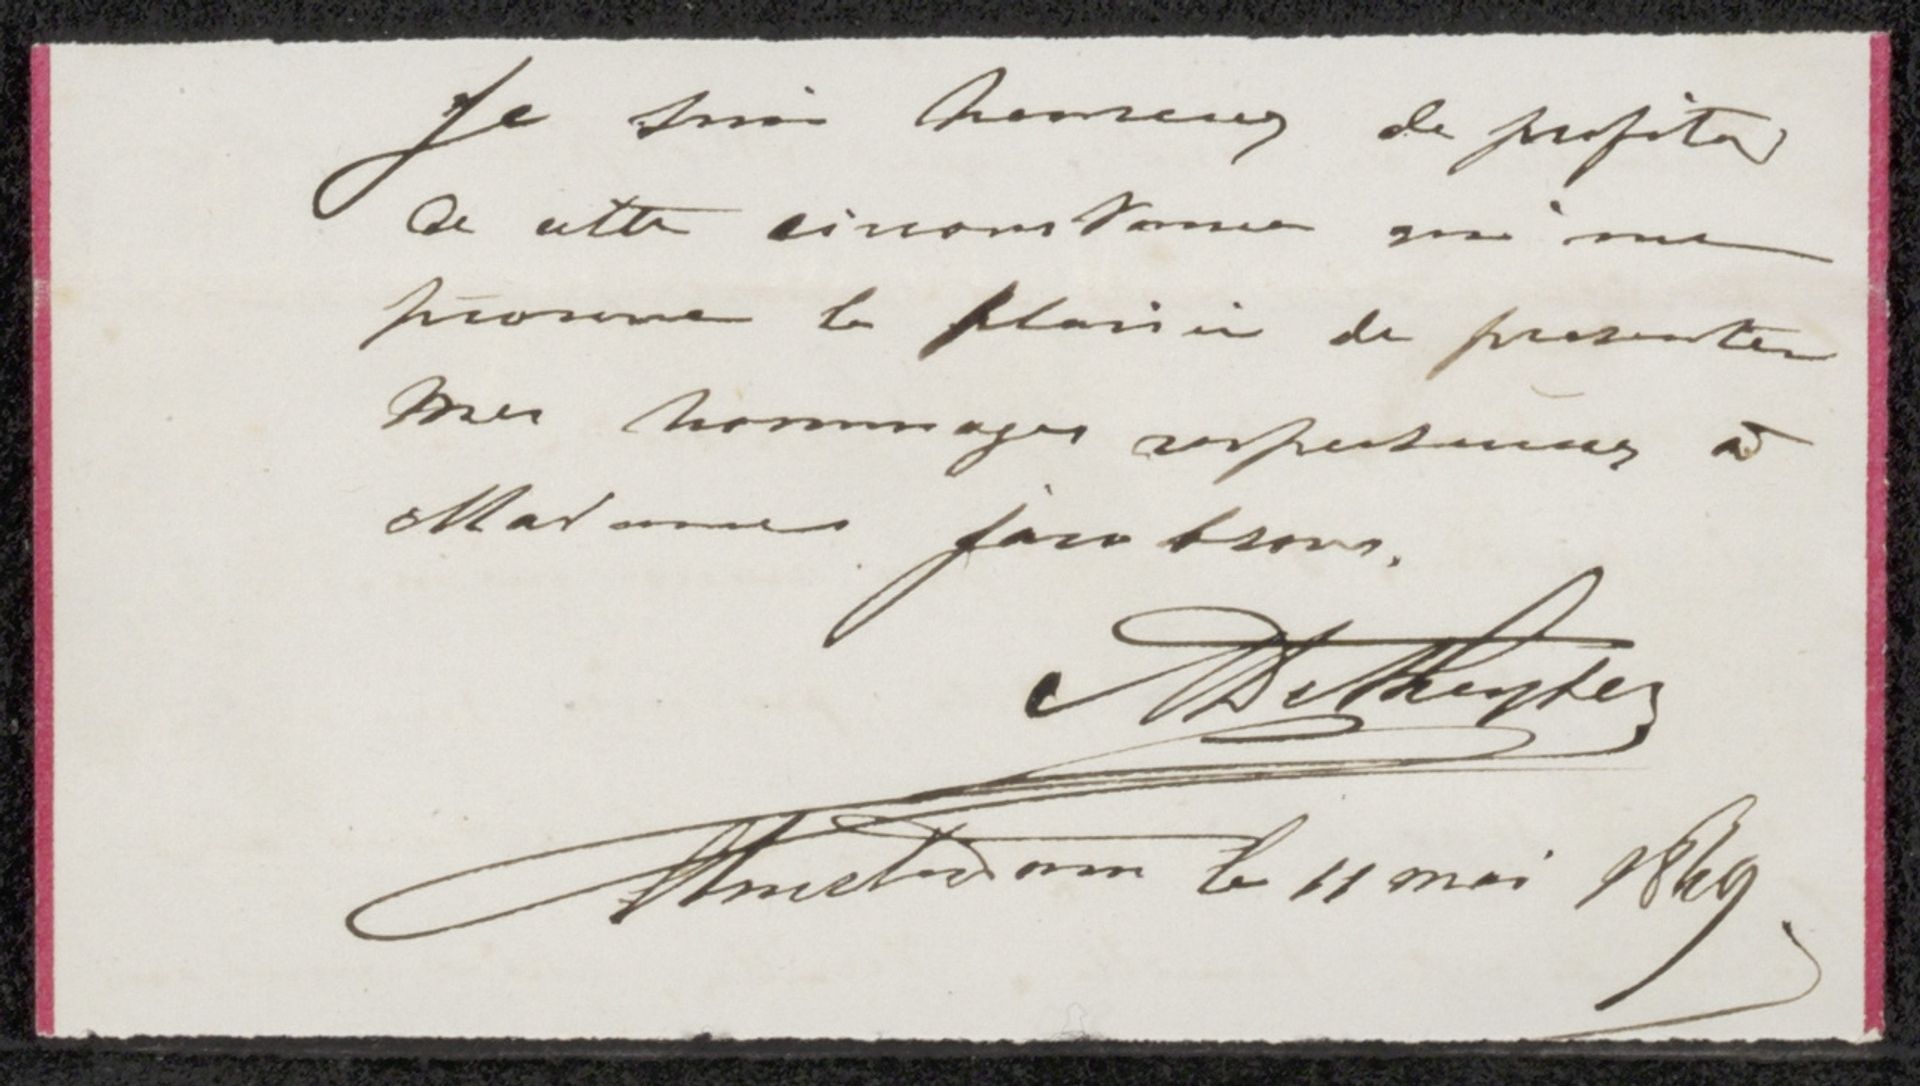 Je suis heureux de profiter
de cette circonstance qui me
procure le plaisir de presenter
mes hommages respectueux à
Madame Jacobson.
Amsterdam le 11 mai 1849